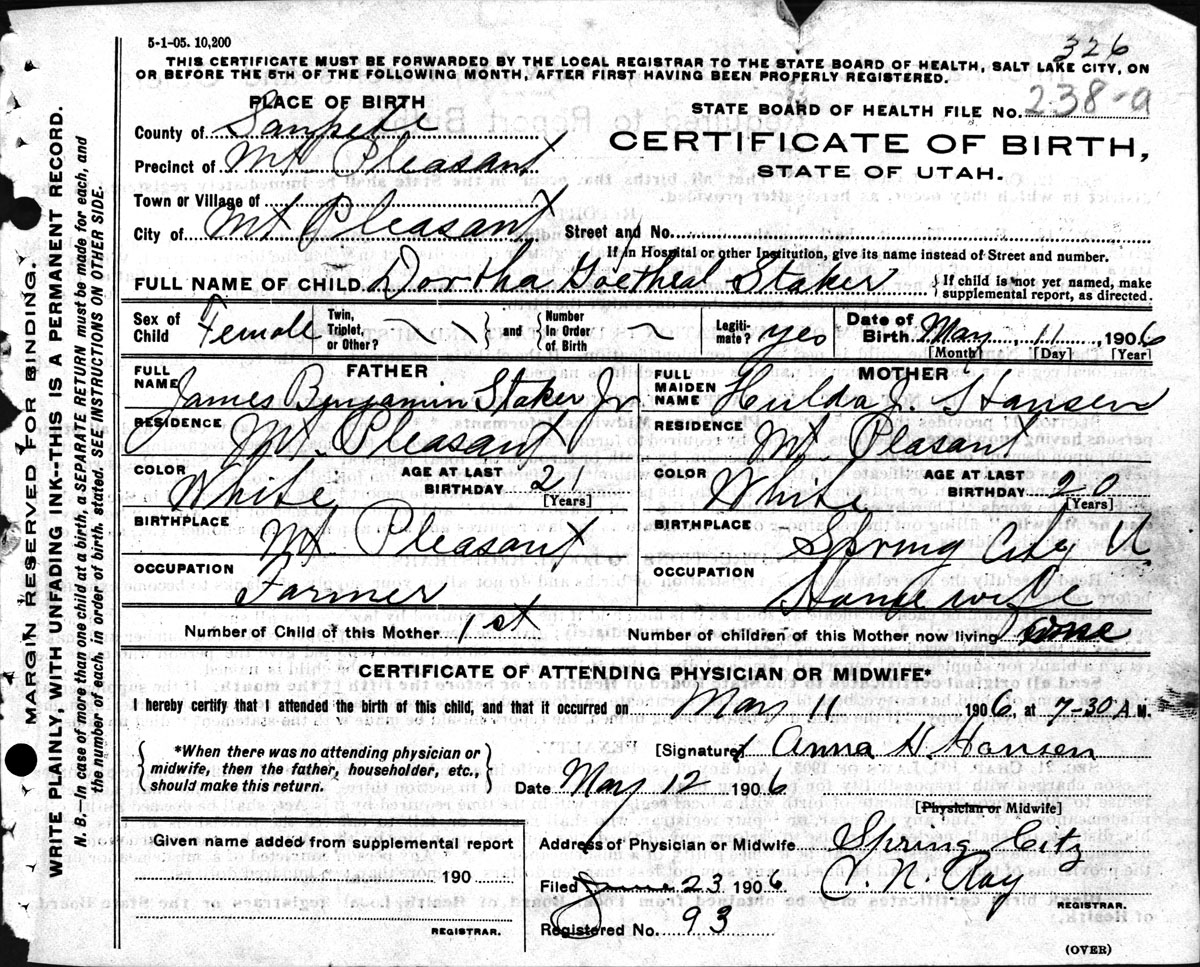 5-1-05. 10,200
326
THIS CERTIFICATE MUST BE FORWARDED BY THE LOCAL REGISTRAR TO THE STATE BOARD OF HEALTH, SALT LAKE CITY, ON
OR BEFORE THE 5TH OF THE FOLLOWING MONTH, AFTER FIRST HAVING BEEN PROPERLY REGISTERED.
PLACE OF BIRTH
STATE BOARD OF HEALTH FILE No. 238-a
County of Sanpete
CERTIFICATE OF BIRTH,
Precinct of Mt Pleasant
STATE OF UTAH.
Town or Village of
City of Mt Pleasant Street and No.
If in Hospital or other Institution, give its name instead of Street and number.
FULL NAME OF CHILD Dortha Staker { If child is not yet named, make supplemental report, as directed.
Sex of Child Female Twin, Triplet, or Other? and Number In Order of Birth Legitimate? yes Date of Birth May 11, 1906
[Month] [Day] [Year]
FATHER
MOTHER
FULL NAME James Benjamin Staker Jr
FULL MAIDEN NAME Hulda J. Hansen
RESIDENCE Mt. Pleasant
RESIDENCE Mt Pleasant
COLOR White AGE AT LAST BIRTHDAY 21 [Years]
COLOR White AGE AT LAST BIRTHDAY 20 [Years]
BIRTHPLACE Mt. Pleasant
BIRTHPLACE Spring City U
OCCUPATION Farmer
OCCUPATION House wife
Number of Child of this Mother 1st Number of children of this Mother now living one
CERTIFICATE OF ATTENDING PHYSICIAN OR MIDWIFE*
I hereby certify that I attended the birth of this child, and that it occurred on May 11 1906, at 7-30 A.M.
*When there was no attending physician or
midwife, then the father, householder, etc.,
should make this return.
[Signature] Anna H Hansen
Date May 12 1906
[Physician or Midwife]
Given name added from supplemental report
190
REGISTRAR.
Address of Physician or Midwife Spring City
Filed June 23 1906 C. N. Ray
REGISTRAR.
Registered No. 93
(OVER)
MARGIN RESERVED FOR BINDING.
WRITE PLAINLY, WITH UNFADING INK--THIS IS A PERMANENT RECORD.
N. B.—In case of more than one child at a birth, a SEPARATE RETURN must be made for each, and
the number of each, in order of birth, stated. SEE INSTRUCTIONS ON OTHER SIDE.